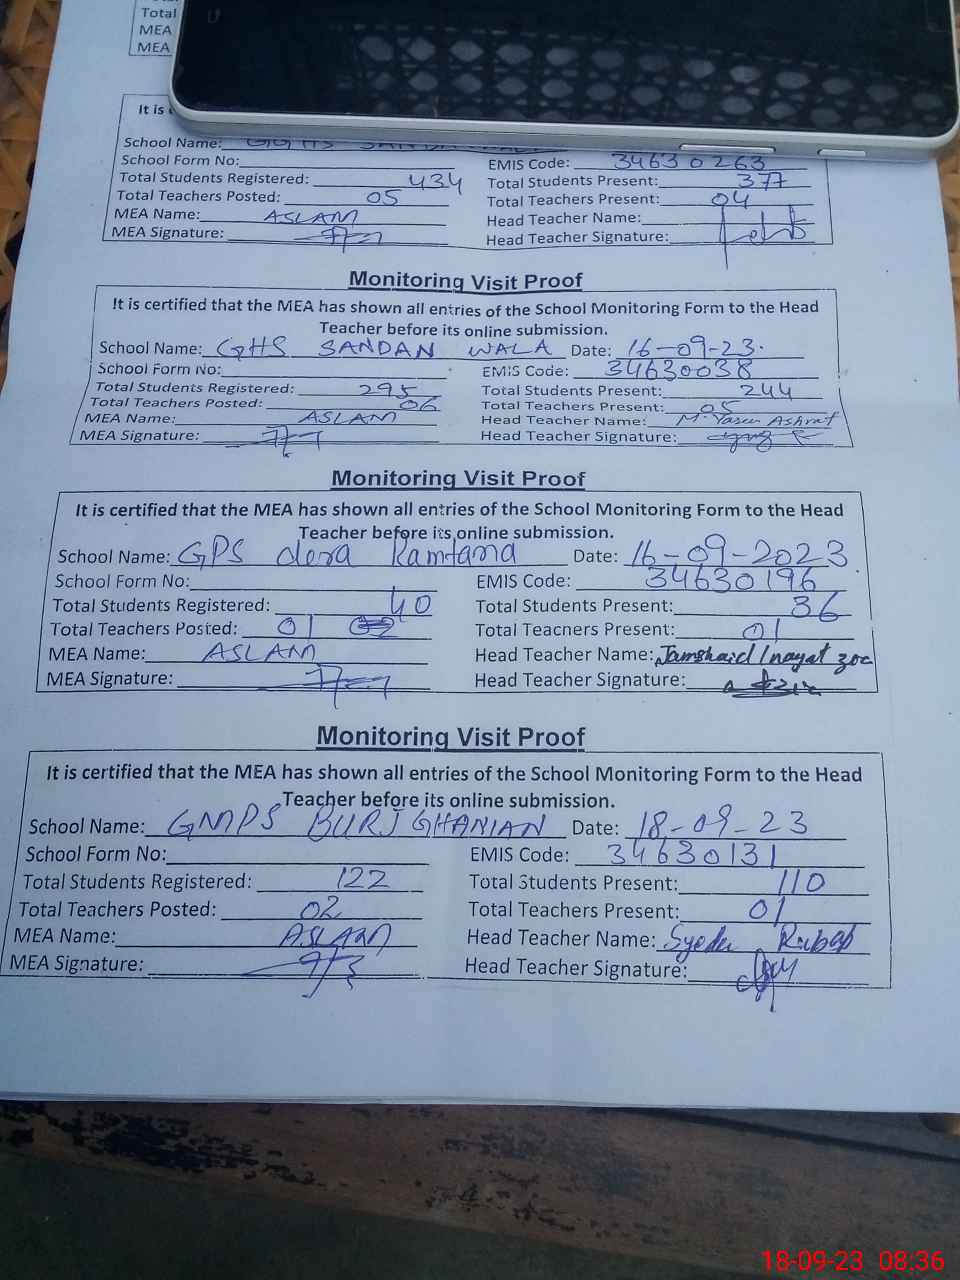 Total
MEA
MEA
It is
School Name: GGHS SANDA WALA
School Form No: EMIS Code: 34630263
Total Students Registered: 434 Total Students Present: 377
Total Teachers Posted: 05 Total Teachers Present: 04
MEA Name: ASLAM Head Teacher Name:
MEA Signature: Head Teacher Signature:
Monitoring Visit Proof
It is certified that the MEA has shown all entries of the School Monitoring Form to the Head
Teacher before its online submission.
School Name: GHS SANDAN WALA Date: 16-09-23.
School Form No: EMIS Code: 34630038
Total Students Registered: 295 Total Students Present: 244
Total Teachers Posted: 06 Total Teachers Present: 05
MEA Name: ASLAM Head Teacher Name: M. Yaseen Ashraf
MEA Signature: Head Teacher Signature:
Monitoring Visit Proof
It is certified that the MEA has shown all entries of the School Monitoring Form to the Head
Teacher before its online submission.
School Name: GPS dera Ramtana Date: 16-09-2023
School Form No: EMIS Code: 34630196
Total Students Registered: 40 Total Students Present: 36
Total Teachers Posted: 01 Total Teachers Present: 01
MEA Name: ASLAM Head Teacher Name: Jamshaid Inayat
MEA Signature: Head Teacher Signature:
Monitoring Visit Proof
It is certified that the MEA has shown all entries of the School Monitoring Form to the Head
Teacher before its online submission.
School Name: GMPS BURJ GHANIAN Date: 18-09-23
School Form No: EMIS Code: 34630131
Total Students Registered: 122 Total Students Present: 110
Total Teachers Posted: 02 Total Teachers Present: 01
MEA Name: ASLAM Head Teacher Name: Syeda Rubab
MEA Signature: Head Teacher Signature:
18-09-23 08:36